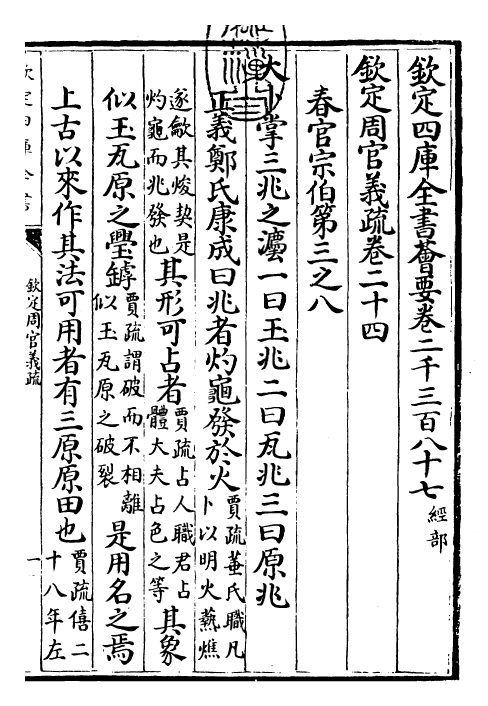 欽定四庫全書薈要卷二千三百八十七經部
欽定周官義疏卷二十四
春官宗伯第三之八
大卜掌三兆之灋一曰玉兆二曰瓦兆三曰原兆
正義鄭氏康成曰兆者灼龜發於火賈疏菙氏職凡卜以明火爇燋
遂龡其焌契是灼龜而兆發也其形可占者賈疏占人職君占體大夫占色之等其象
似玉瓦原之璺罅賈疏謂破而不相離似玉瓦原之破裂是用名之焉
上古以來作其法可用者有三原原田也賈疏僖二十八年左
欽定四庫全書
欽定周官義疏
一